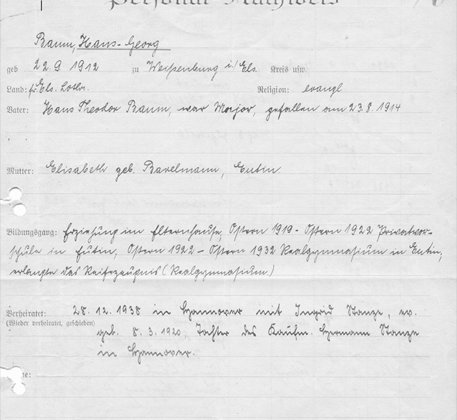 Personal-Nachweis
Raum, Hans-Georg
geb 22.9.1912 zu Weißenburg i/Els. Kreis usw.
Land: Els. Lothr. Religion: evangl
Vater: Hans Theodor Raum, war Major, gefallen am 23.8.1914
Mutter: Elisabeth geb. Bavelmann, Eutin
Bildungsgang: Erziehung im Elternhause, Ostern 1919 - Ostern 1922 Privatvor-
schule in Eutin, Ostern 1922 - Ostern 1932 Realgymnasium in Eutin,
erlangte das Reifezeugnis (Realgymnasium)
Verheiratet: 28.12.1938 in Hannover mit Ingrid Stange, ev.
(Wieder verheiratet, geschieden) geb. 8.3.1920, Tochter des Kaufm. Hermann Stange
in Hannover.